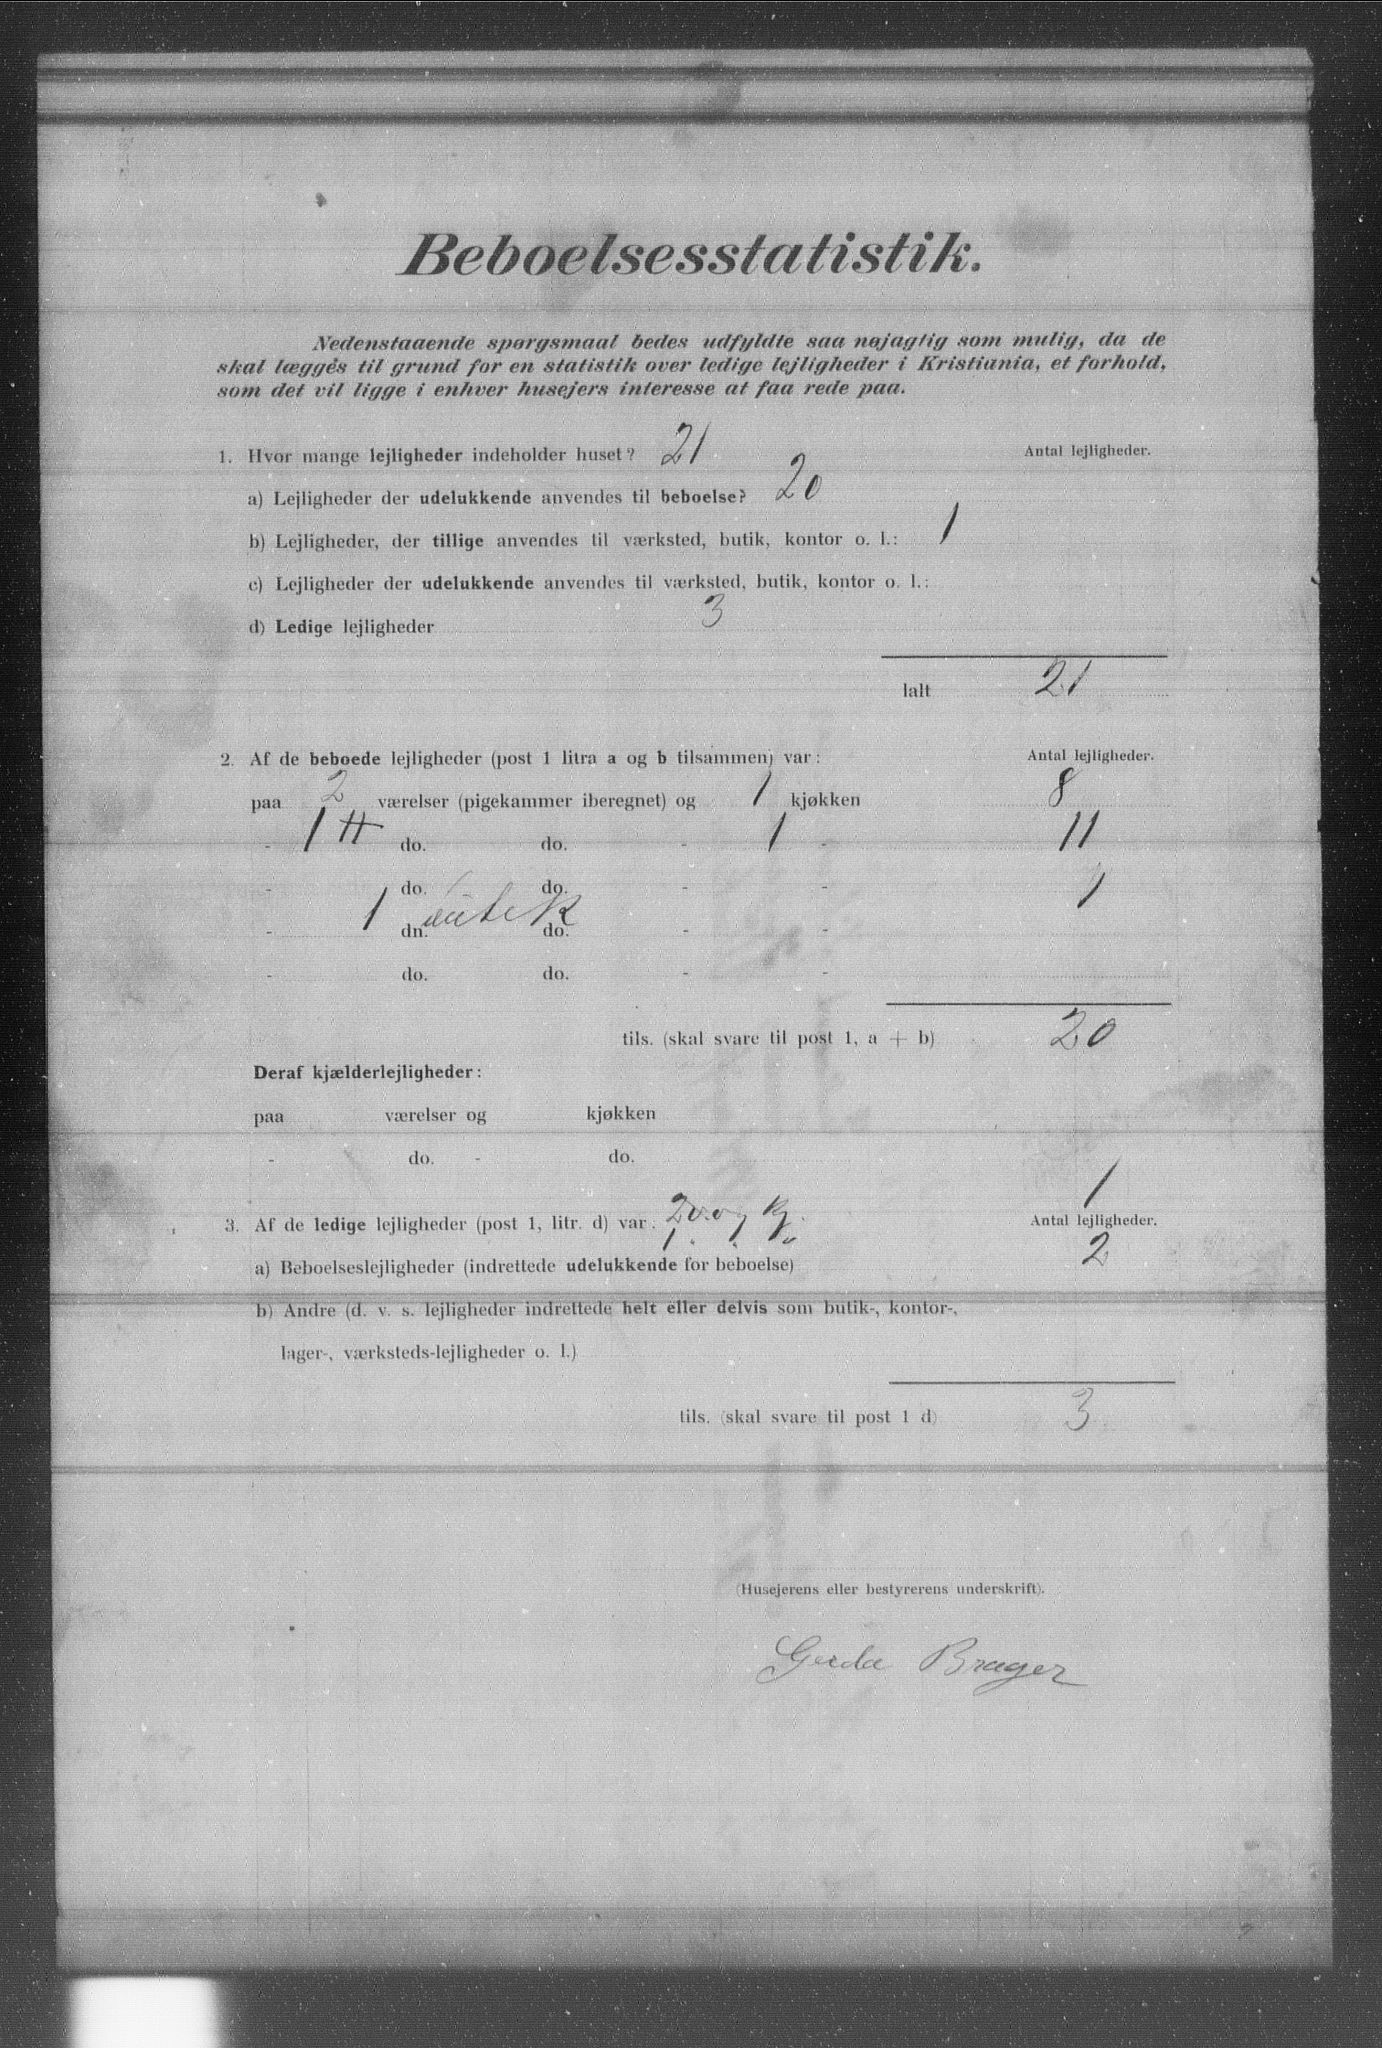 Beboelsesstatistik.
Nedenstaaende spørgsmaal bedes udfyldte saa nøjagtig som mulig, da de
skal lægges til grund for en statistik over ledige lejligheder i Kristiania, et forhold,
som det vil ligge i enhver husejers interesse at faa rede paa.
1. Hvor mange lejligheder indeholder huset? 21 Antal lejligheder.
a) Lejligheder der udelukkende anvendes til beboelse? 20
b) Lejligheder, der tillige anvendes til værksted, butik, kontor o. l.: 1
c) Lejligheder der udelukkende anvendes til værksted, butik, kontor o. l.:
d) Ledige lejligheder 3
Ialt 21
2. Af de beboede lejligheder (post 1 litra a og b tilsammen) var: Antal lejligheder.
paa 2 værelser (pigekammer iberegnet) og 1 kjøkken 8
- 1 do. do. - 1 - 11
- do. do. - - 1
- 1 butik dn. do. - -
- do. do. - -
tils. (skal svare til post 1, a + b) 20
Deraf kjælderlejligheder:
paa værelser og kjøkken
- do. - do.
1
3. Af de ledige lejligheder (post 1, litr. d) var. 2 v. og kj. Antal lejligheder.
1 " " "
a) Beboelseslejligheder (indrettede udelukkende for beboelse) 2
b) Andre (d. v. s. lejligheder indrettede helt eller delvis som butik-, kontor-,
lager-, værksteds-lejligheder o. l.)
tils. (skal svare til post 1 d) 3
(Husejerens eller bestyrerens underskrift).
Gerda Brager